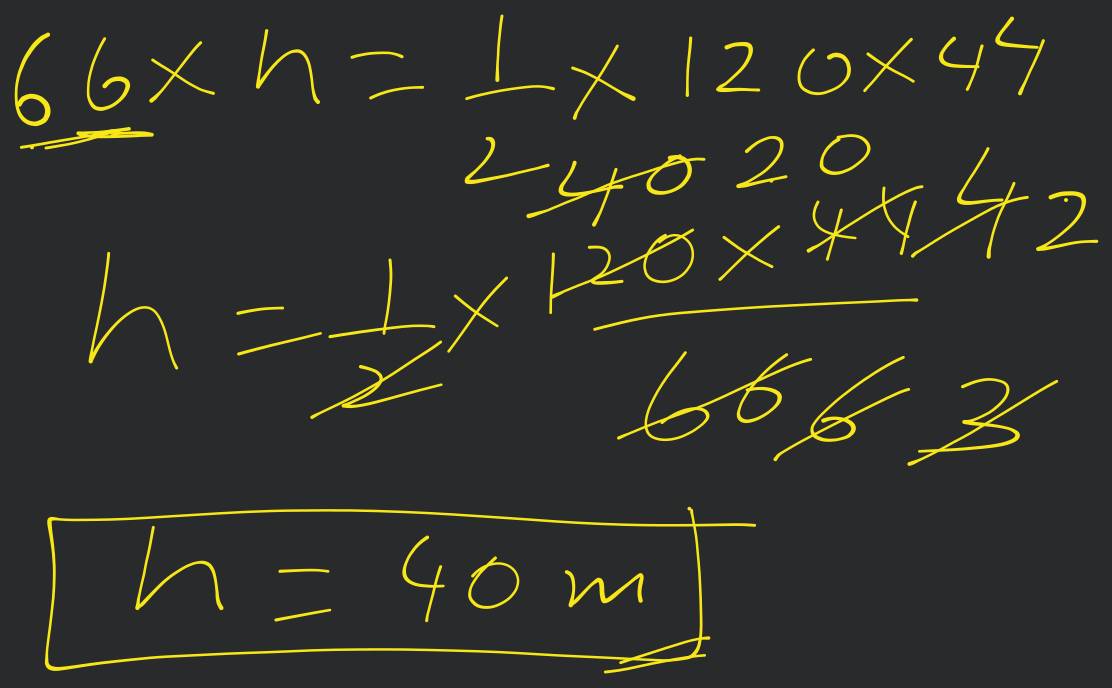 66 × h = 1/2 × 120 × 44
40 20
4 2
h = 1/2 × 120 × 44
66 6 3
h = 40 m